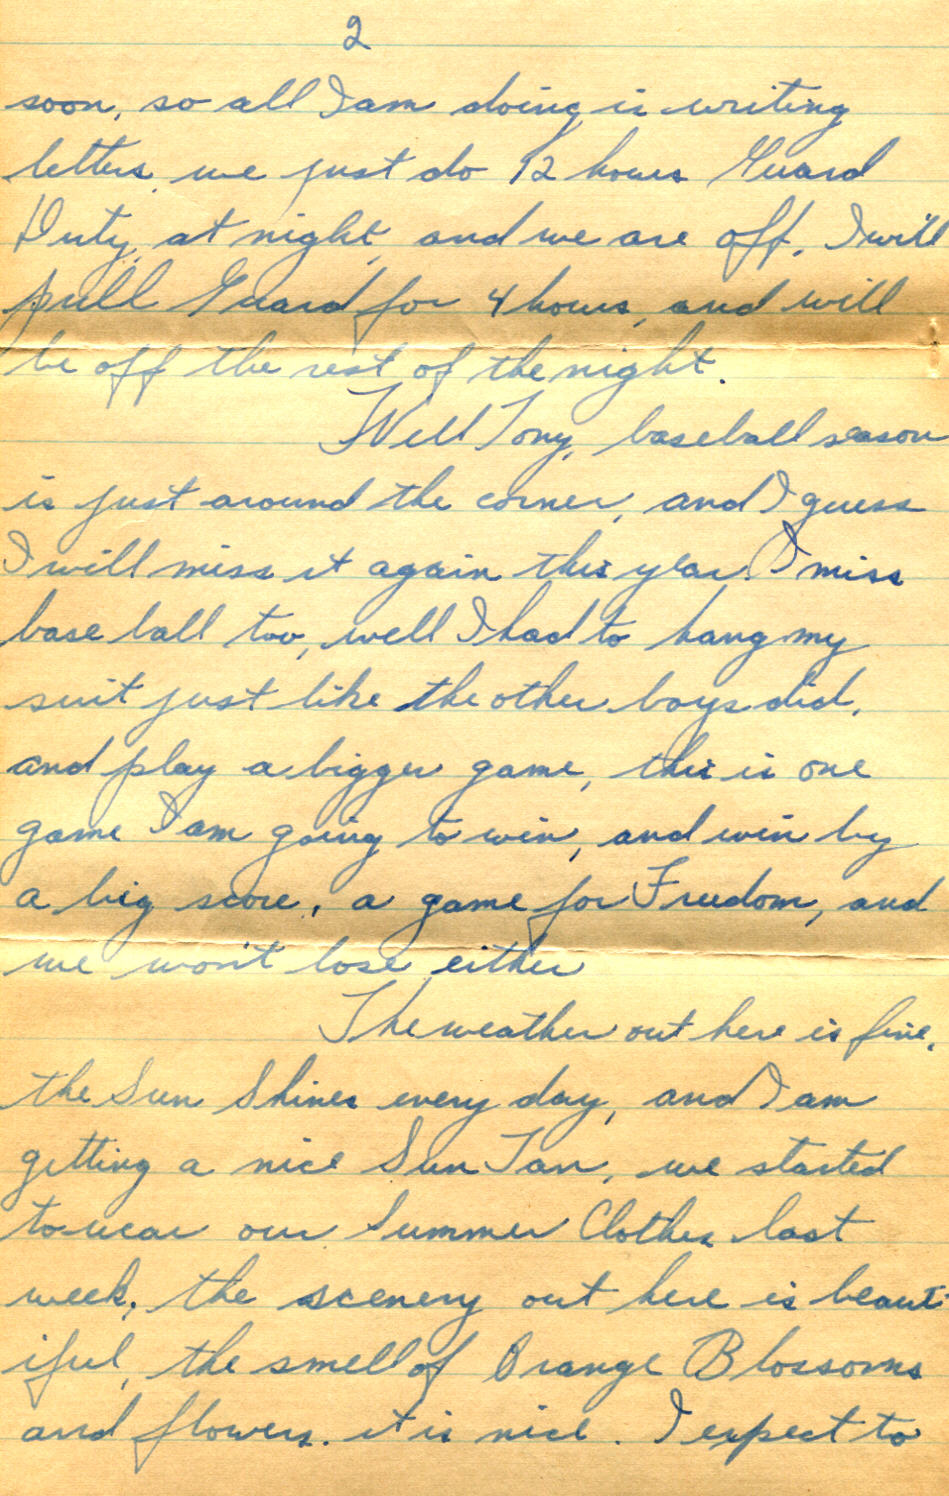 2
soon, so all I am doing is writing
letters, we just do 12 hours Guard
Duty, at night, and we are off, I will
pull Guard for 4 hours, and will
be off the rest of the night.
Well Tony, baseball season
is just around the corner, and I guess
I will miss it again this year. I miss
base ball too, well I had to hang my
suit just like the other boys did,
and play a bigger game, this is one
game I am going to win, and win by
a big score, a game for Freedom, and
we won't lose either
The weather out here is fine,
the Sun Shines every day, and I am
getting a nice Sun Tan, we started
to wear our Summer Clothes last
week, the scenery out here is beaut
iful, the smell of Orange Blossoms
and flowers. it is nice. I expect to